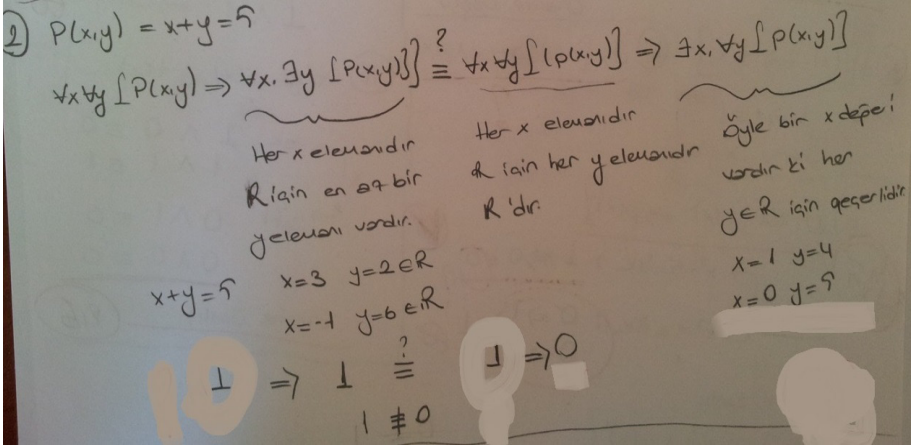 2) P(x,y) = x+y=5
∀x∀y [P(x,y) ⇒ ∀x.∃y [P(x,y)]] ≟ ∀x∀y [(p(x,y)] ⇒ ∃x,∀y [p(x,y)]
Her x elemanıdır
R için en az bir
y elemanı vardır.
Her x elemanıdır
R için her y elemanıdır
R'dir.
Öyle bir x değeri
vardır ki her
y∈R için geçerlidir.
x+y=5
x=3 y=2∈R
x=-1 y=6∈R
x=1 y=4
x=0 y=5
1 ⇒ 1 ≟ 1 ⇒ 0
1 ≢ 0